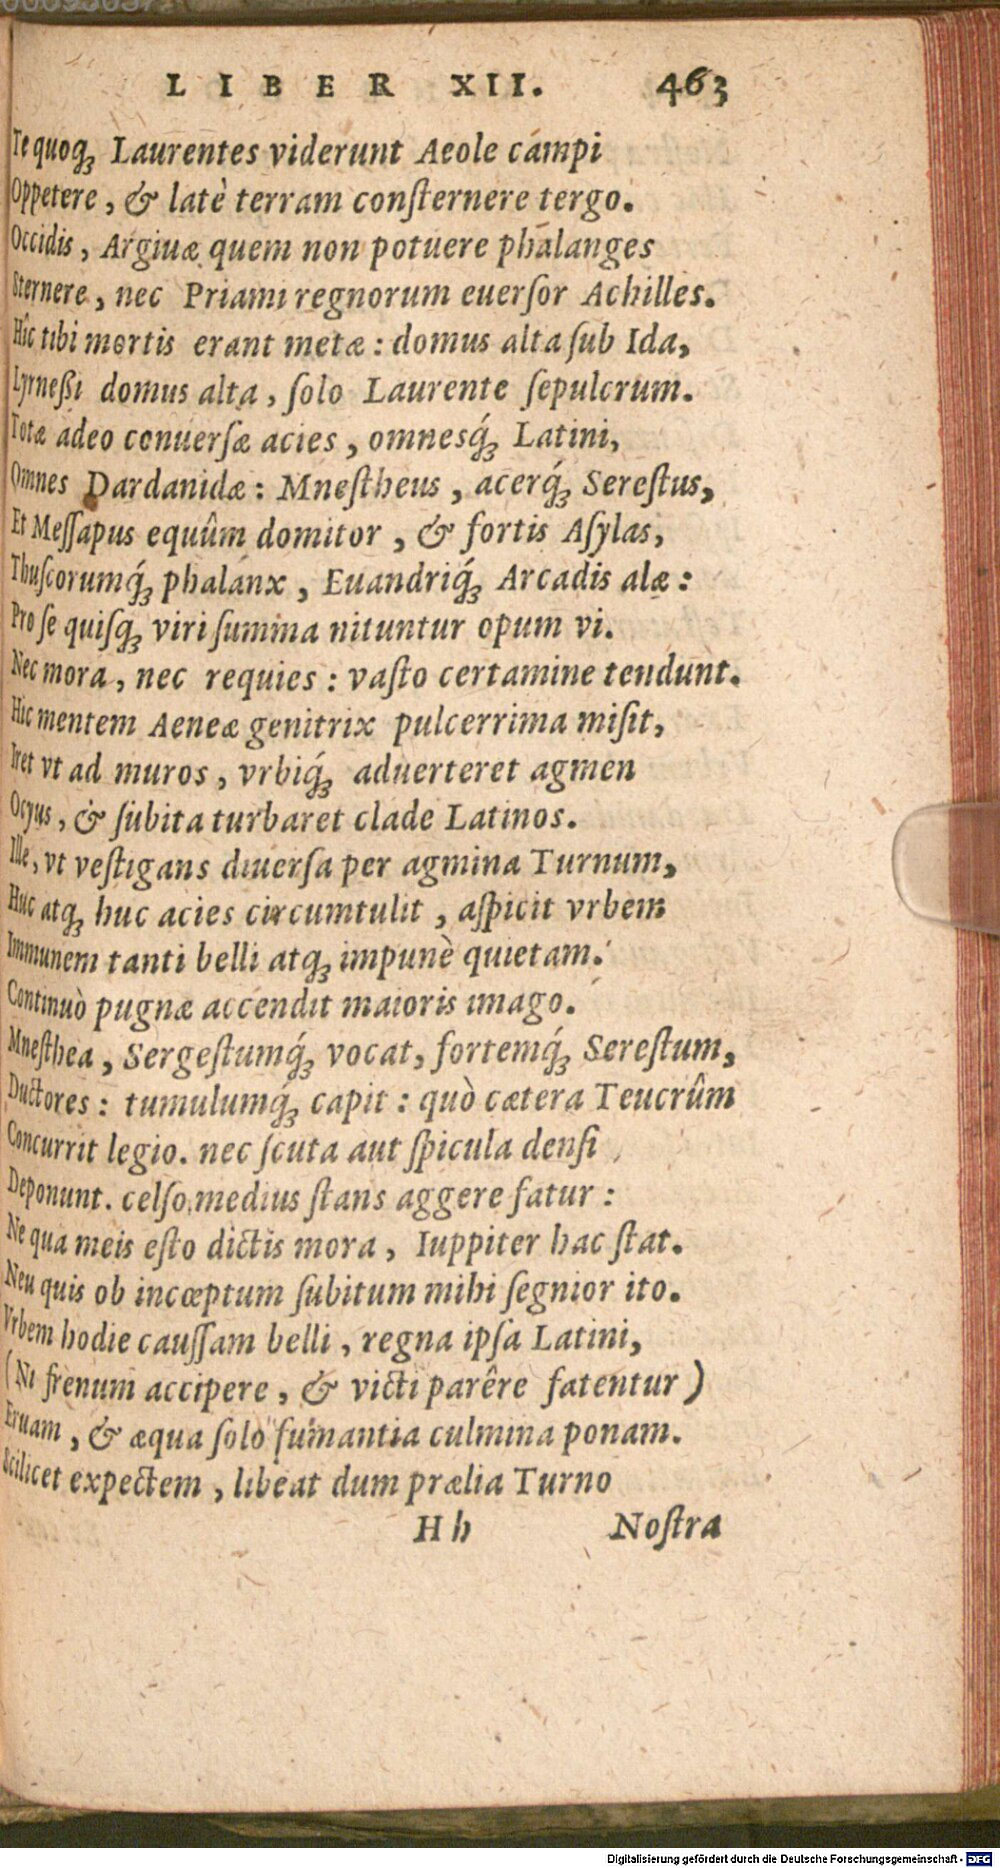 LIBER XII. 463
Te quoq́ꝫ Laurentes viderunt Aeole campi
Oppetere, & latè terram conſternere tergo.
Occidis, Argiuæ quem non potuere phalanges
Sternere, nec Priami regnorum euerſor Achilles.
Hîc tibi mortis erant metæ: domus alta ſub Ida,
Lyrneßi domus alta, ſolo Laurente ſepulcrum.
Totæ adeo conuerſæ acies, omnesq́ꝫ Latini,
Omnes Dardanidæ: Mneſtheus, acerq́ꝫ Sereſtus,
Et Meſſapus equûm domitor, & fortis Aſylas,
Thuſcorumq́ꝫ phalanx, Euandriq́ꝫ Arcadis alæ:
Pro ſe quiſqꝫ viri ſumma nituntur opum vi.
Nec mora, nec requies: vaſto certamine tendunt.
Hic mentem Aeneæ genitrix pulcerrima miſit,
Iret vt ad muros, vrbiq́ꝫ aduerteret agmen
Ocyus, & ſubita turbaret clade Latinos.
Ille, vt veſtigans diuerſa per agmina Turnum,
Huc atqꝫ huc acies circumtulit, aſpicit vrbem
Immunem tanti belli atqꝫ impunè quietam.
Continuò pugnæ accendit maioris imago.
Mneſthea, Sergeſtumq́ꝫ vocat, fortemq́ꝫ Sereſtum,
Ductores: tumulumq́ꝫ capit: quò cætera Teucrûm
Concurrit legio. nec ſcuta aut ſpicula denſi
Deponunt. celſo medius ſtans aggere fatur:
Ne qua meis eſto dictis mora, Iuppiter hac ſtat.
Neu quis ob incœptum ſubitum mihi ſegnior ito.
Vrbem hodie cauſſam belli, regna ipſa Latini,
(Ni frenum accipere, & victi parêre fatentur)
Eruam, & æqua ſolo fumantia culmina ponam.
Scilicet expectem, libeat dum prælia Turno
Hh Noſtra
Digitalisierung gefördert durch die Deutsche Forschungsgemeinschaft - DFG